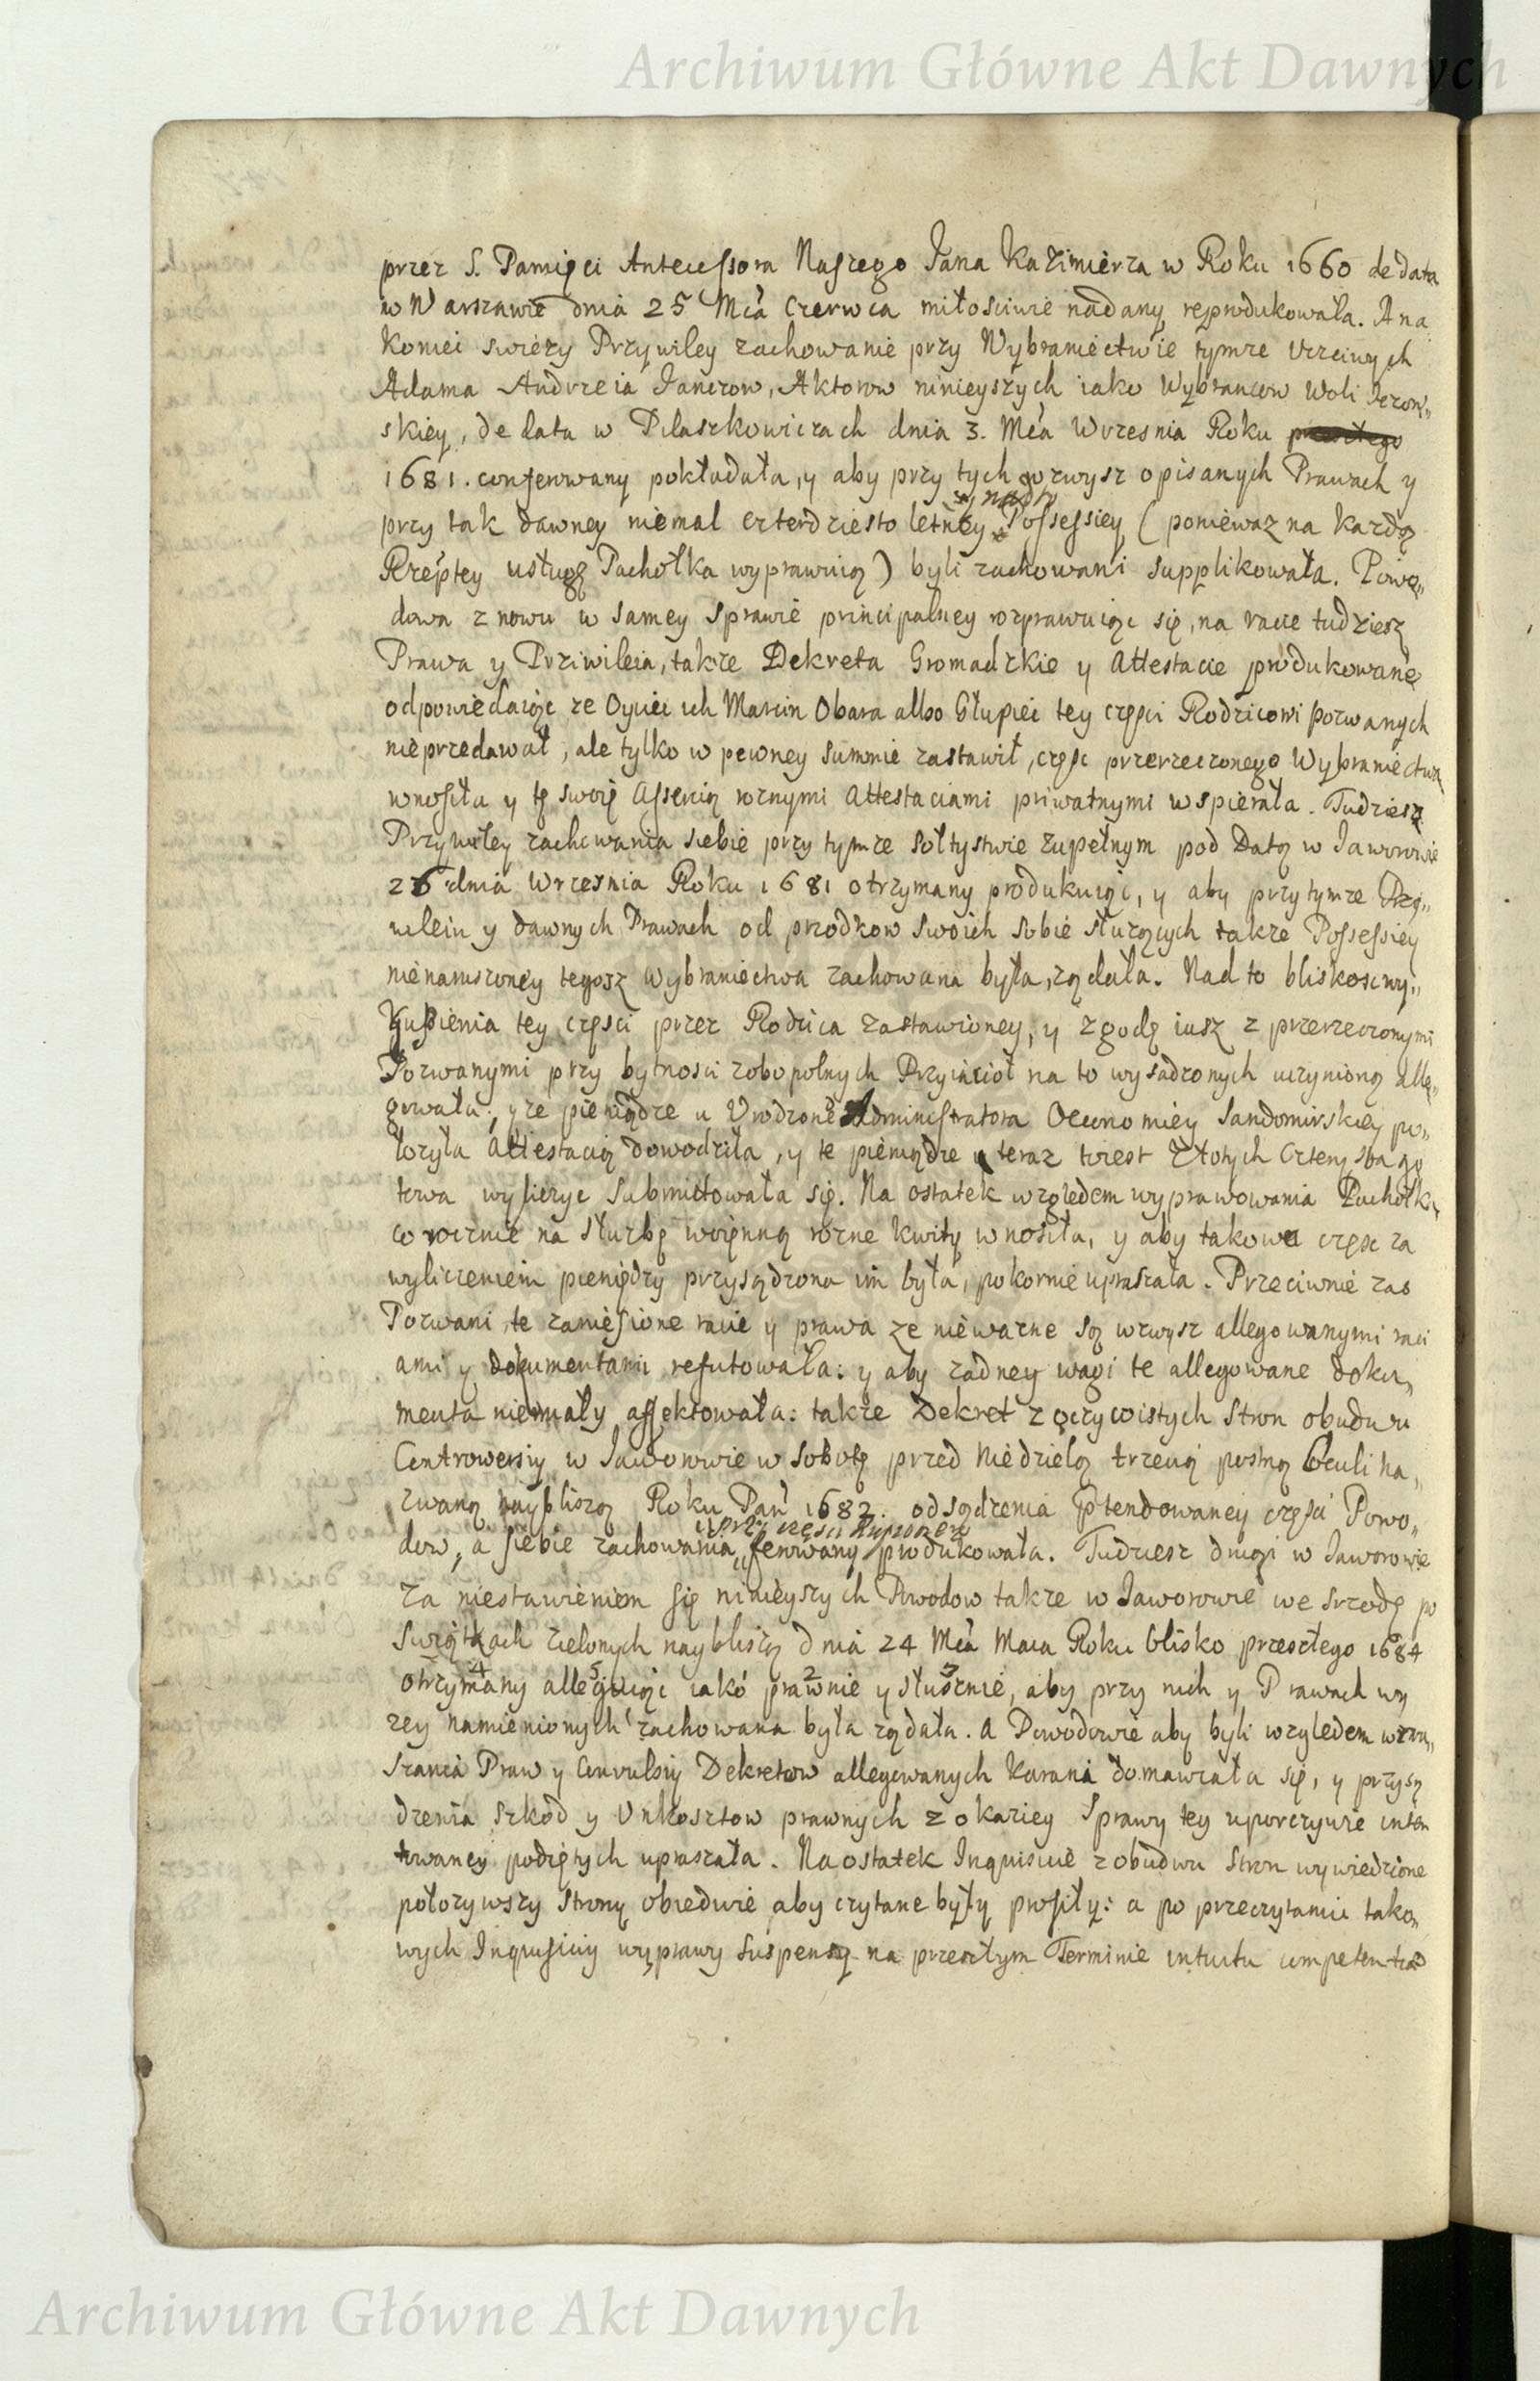 Archiwum Główne Akt Dawnych
przez S. Pamięci Antecessora Naszego Jana Kazimierza w Roku 1660 de data
w Warszawie dnia 25 Mca Czerwca miłosciwie nadany reprodukowała. A na
koniec swiezy Przywiley zachowanie przy Wybraniectwie tymze Uczciwych
Adama Andrzeia Janczow, Aktorow ninieyszych iako Wybrancow Woli
skiey, de data w Pilaszkowicach dnia 3. Mca Wrzesnia Roku
1681. conferowany pokładała, y aby przy tych zwysz opisanych Prawach y
przy tak dawney niemal czterdziesto letniey Possessiey (poniewaz na kazdą
Rzeptey usługę Pachołka wyprawuią) byli zachowani supplikowała. Powo„
dowa znowu w samey sprawie principalney rozprawuiąc się, na racie tudziesz
Prawa y Prziwileia, takze Dekreta Gromadzkie y Attestacie produkowane
odpowiedaiąc ze Oyciec ich Marcin Obara albo Głupiec tey częsci Rodzicowi Pozwanych
nieprzedawał, ale tylko w pewney summie zastawił, częsc przerzeczonego Wybraniectwa
wnosiła y tę swoię Assercią roznymi Attestaciami priwatnymi wspierała. Tudziesz
Przywiley zachowania siebie przy tymze sołtystwie zupełnym pod Datą w Jaworowie
26 dnia Wrzesnia Roku 1681 otrzymany produkuiąc, y aby przytymze Przy„
wileiu y dawnych Prawach od przodkow swoich sobie słuzących takze Possessiey
nienaruszoney tegosz Wybraniectwa zachowana była, ządała. Nad to bliskosc wy„
kupienia tey częsci przez Rodzica zastawioney, y zgodę iusz z przerzeczonymi
Pozwanymi przy bytnosci zobopolnych Przyiacioł na to wysadzonych uczynioną alle„
gowała; y ze pieniądze u Urodzone Administratora Oeconomiey Sandomirskiey po„
łozyła Attestacią dowodziła, y te pieniądze teraz iest Złotych Cztery sta go
towa wyliczyc submittowała się. Na ostatek względem wyprawowania Pachołka
co rocznie na słuzbę woięnną rozne kwity wnosiła, y aby takowa częsc za
wyliczeniem pieniędzy przysądzona im była, pokornie upraszała. Przeciwnie zas
Pozwani te zaniesione racie y prawa ze niewazne są wzwysz allegowanymi raci
ami y dokumentami refutowała: y aby zadney wagi te allegowane doku„
menta niemiały affektowała: takze Dekret z oczywistych Stron obudwu
Controwersiy w Jaworowie w Sobotę przed Niedzielą trzecią postną Oculi na„
zwaną naybliszą Roku Pań 1682. od sądzenia Ptendowaney częsci Powo„
dow, a siebie zachowania ferowany produkowała. Tudziesz drugi w Jaworowie
za niestawieniem się ninieyszych Powodow takze w Jaworowie we srzodę po
Swiątkach zielonych naybliszą dnia 24 Mca Maia Roku blisko przeszłego 1684
otrzymany alleguiąc iako prawnie y słusznie, aby przy nich y Prawach wy
zey namienionych zachowana była ządała. A Powodowie aby byli względem wzru„
szania Praw y Convulsiy Dekretow allegowanych karani domawiała się, y przysą
dzenia szkod y Unkosztow prawnych z okaziey Sprawy tey uporczywie inten
towaney podiętych upraszała. Na ostatek Inquisicie z obudwu Stron wywiedzione
połozywszy Strony obiedwie aby czytane były prosiły: a po przeczytaniu tako„
wych Inquisiciy wyprawy suspensą na przeszłym Terminie intuitu
Archiwum Główne Akt Dawnych